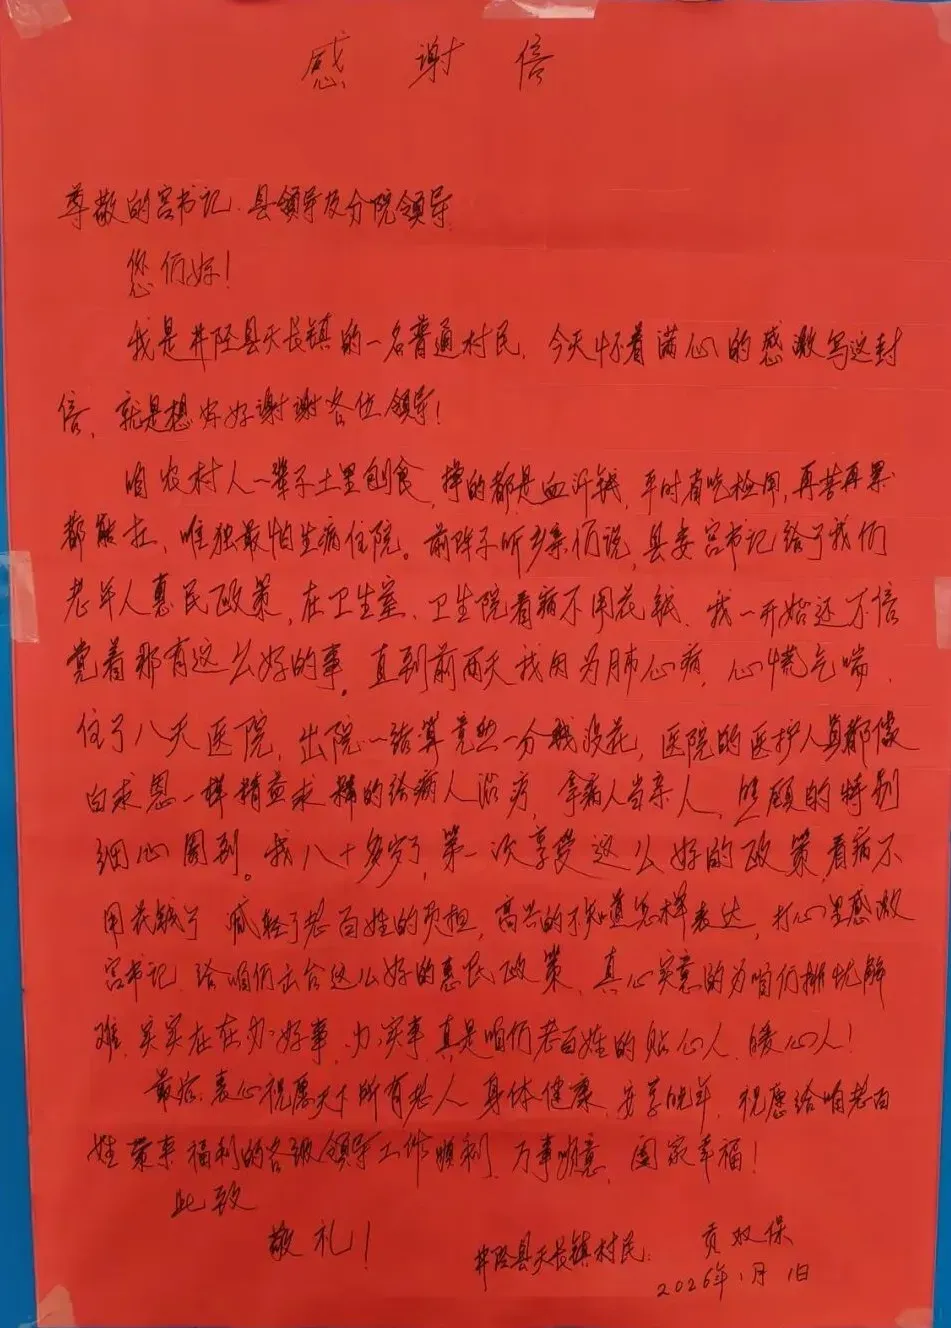 感谢信
尊敬的宫书记、县领导及分院领导
您们好!
我是井陉县天长镇的一名普通村民,今天怀着满心的感激写这封
信,就是想好好谢谢各位领导!
咱农村人一辈子土里刨食,挣的都是血汗钱,平时省吃俭用,再苦再累
都能扛,唯独最怕生病住院。前阵子听乡亲们说,县委宫书记给了我们
老年人惠民政策,在卫生室、卫生院看病不用花钱,我一开始还不信
觉着那有这么好的事。直到前两天我因为肺心病,心慌气喘,
住了八天医院,出院一结算竟然一分钱没花,医院的医护人真都像
白求恩一样精益求精的给病人治疗,拿病人当亲人,照顾的特别
细心周到。我八十多岁了,第一次享受这么好的政策,看病不
用花钱了 减轻了老百姓的负担,高兴的不知道怎样表达,打心里感激
宫书记,给咱们出台这么好的惠民政策,真心实意的为咱们排忧解
难,实实在在办好事,办实事,真是咱们老百姓的贴心人,暖心人!
最后,衷心祝愿天下所有老人 身体健康,安享晚年,祝愿给咱老百
姓带来福利的各级领导工作顺利,万事顺意,阖家幸福!
此致
敬礼!
井陉县天长镇村民: 贡双保
2026年1月1日